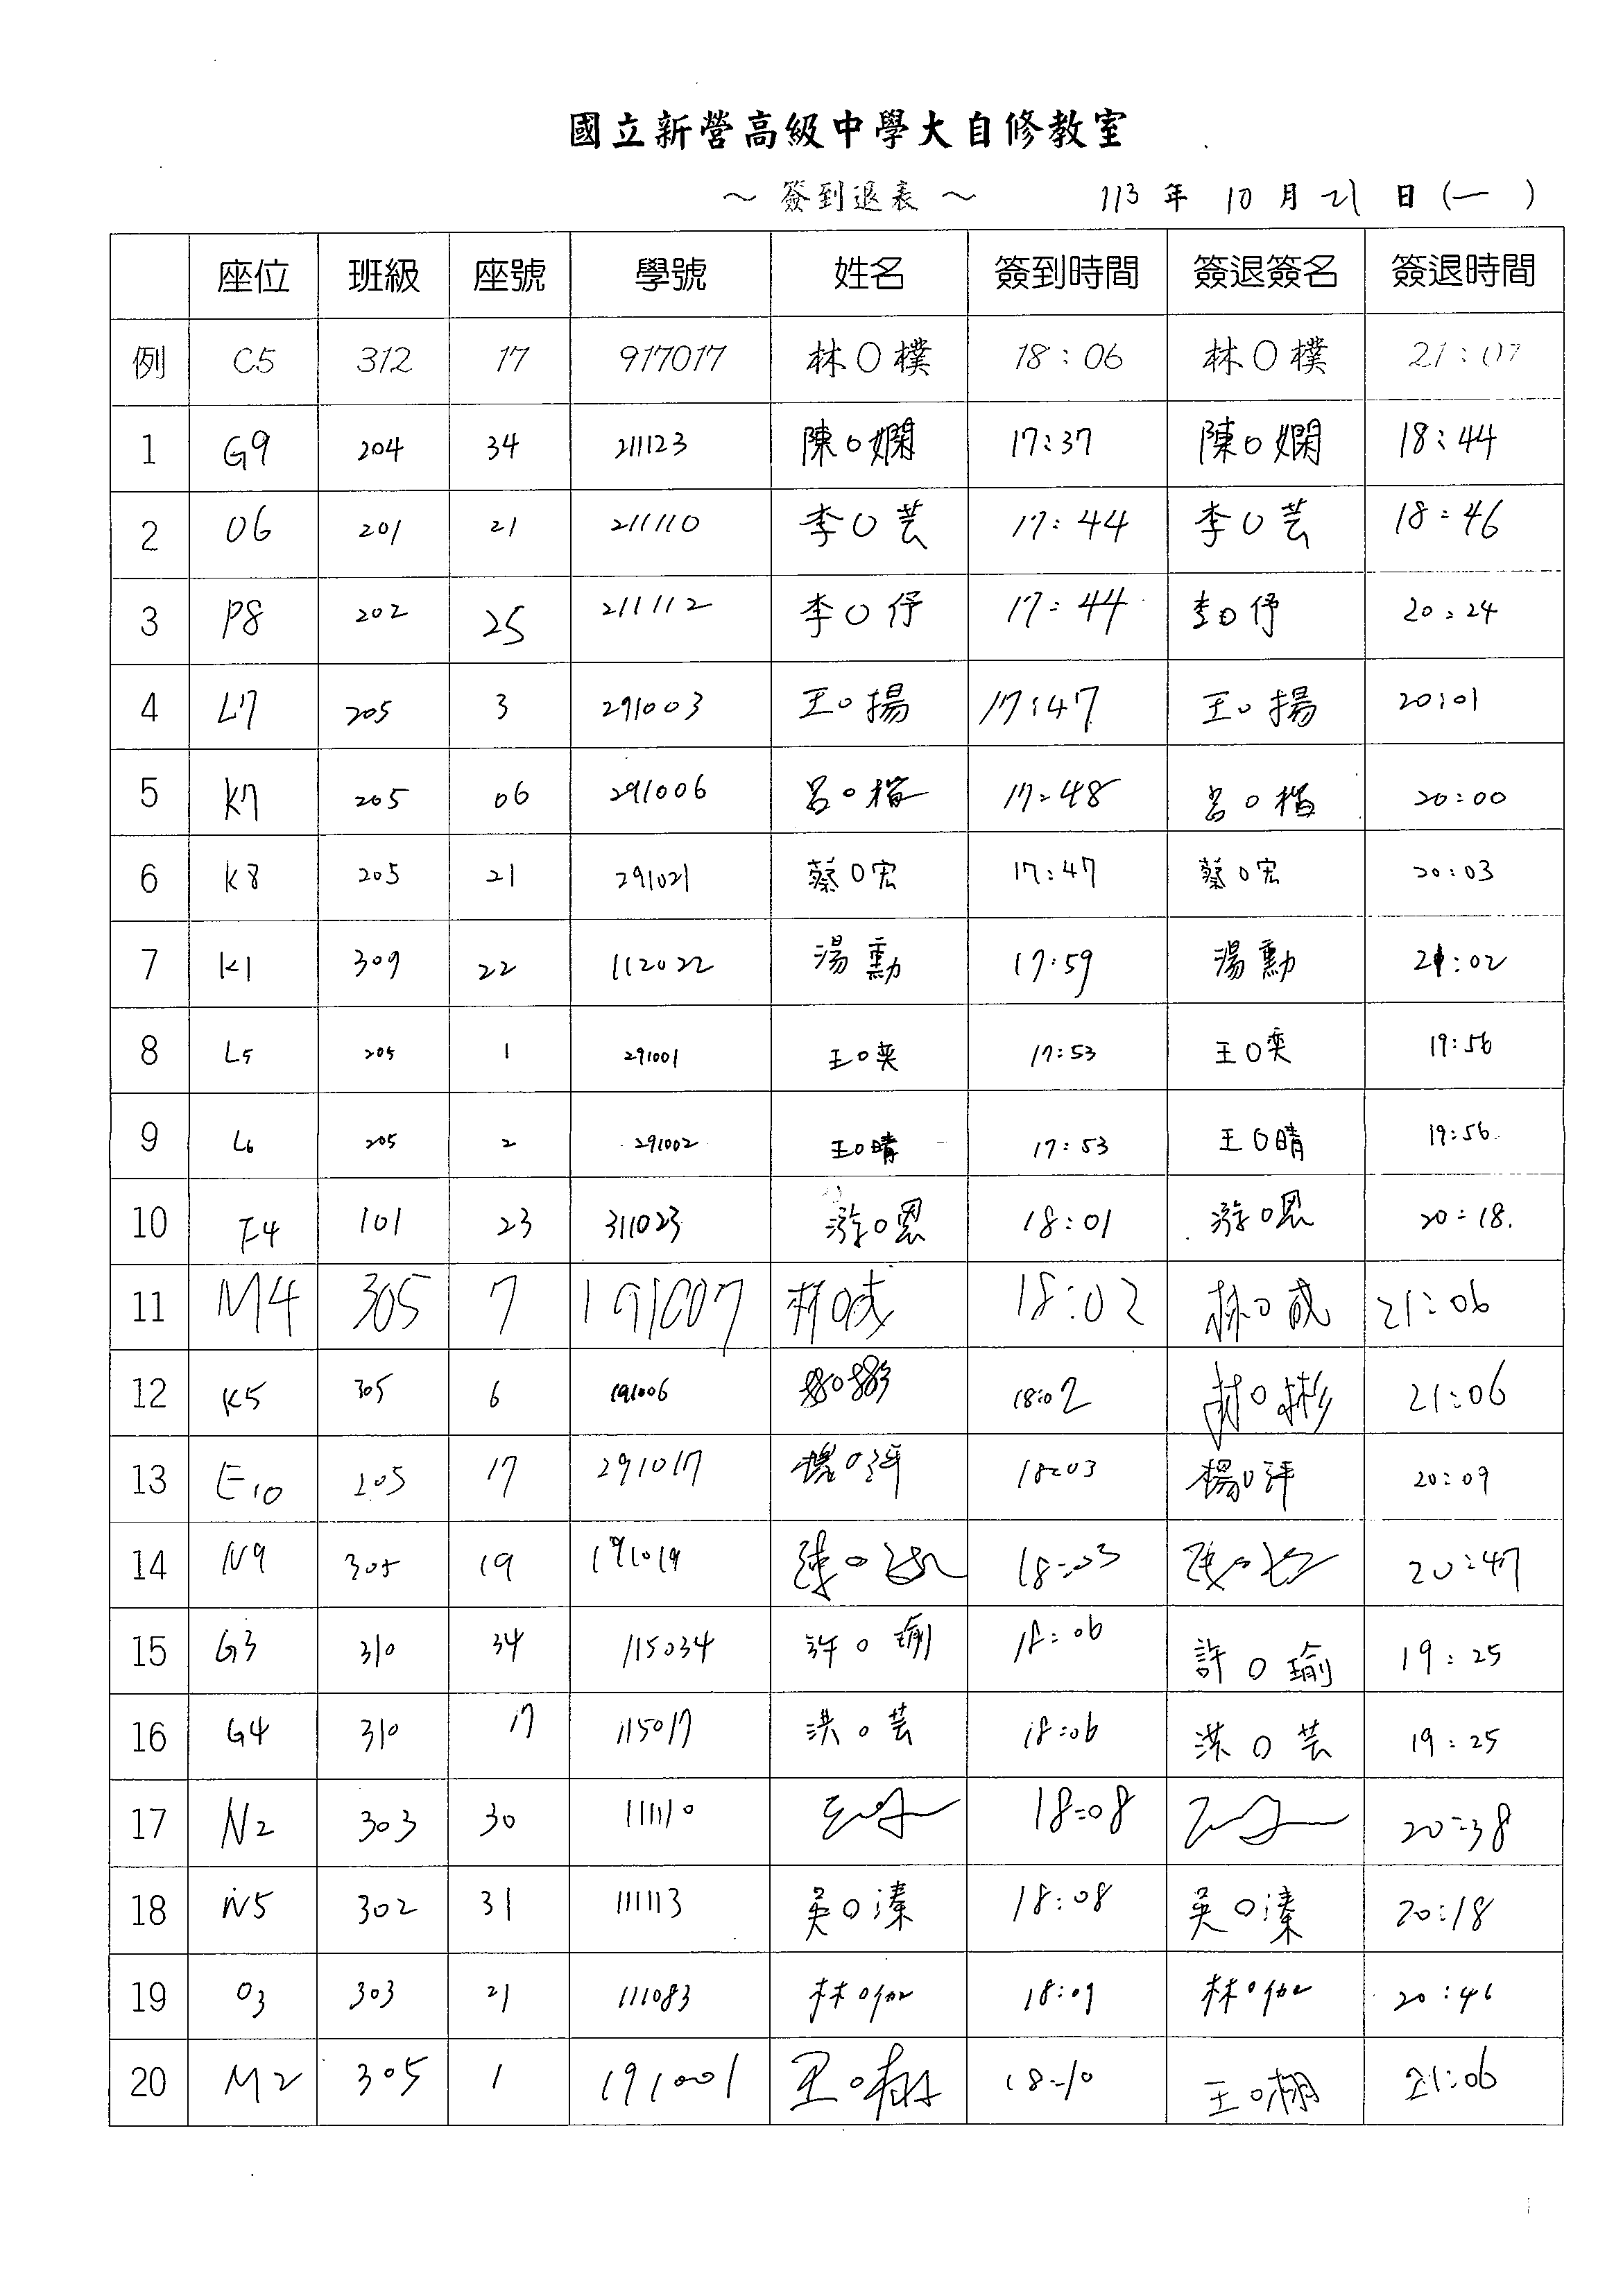 國立新營高級中學大自修教室
～ 簽到退表 ～ 113 年 10 月 21 日 (一)
座位 班級 座號 學號 姓名 簽到時間 簽退簽名 簽退時間
例 C5 312 17 917017 林〇樸 18:06 林〇樸 21:07
1 G9 204 34 211123 陳〇嫻 17:37 陳〇嫻 18:44
2 O6 201 21 211110 李〇芸 17:44 李〇芸 18:46
3 P8 202 25 211112 李〇伃 17:44 李〇伃 20:24
4 L7 205 3 291003 王〇揚 17:47 王〇揚 20:01
5 K7 205 06 291006 呂〇楷 17:48 呂〇楷 20:00
6 K8 205 21 291021 蔡〇宏 17:47 蔡〇宏 20:03
7 K1 309 22 112022 湯勳 17:59 湯勳 21:02
8 L5 205 1 291001 王〇奕 17:53 王〇奕 19:56
9 L6 205 2 291002 王〇晴 17:53 王〇晴 19:56
10 F4 101 23 311023 游〇恩 18:01 游〇恩 20:18
11 M4 305 7 191007 林〇成 18:02 林〇成 21:06
12 K5 305 6 191006 18:02 林〇彬 21:06
13 E10 205 17 291017 楊〇評 18:03 楊〇評 20:09
14 N9 305 19 191019 陳〇 18:03 陳〇 20:47
15 G3 310 34 115034 許〇瑜 18:06 許〇瑜 19:25
16 G4 310 17 115017 洪〇芸 18:06 洪〇芸 19:25
17 N2 303 30 111110 18:08 20:38
18 N5 302 31 111113 吳〇溱 18:08 吳〇溱 20:18
19 O3 303 21 111083 林〇 18:09 林〇 20:46
20 M2 305 1 191001 王〇栩 18:10 王〇栩 21:06